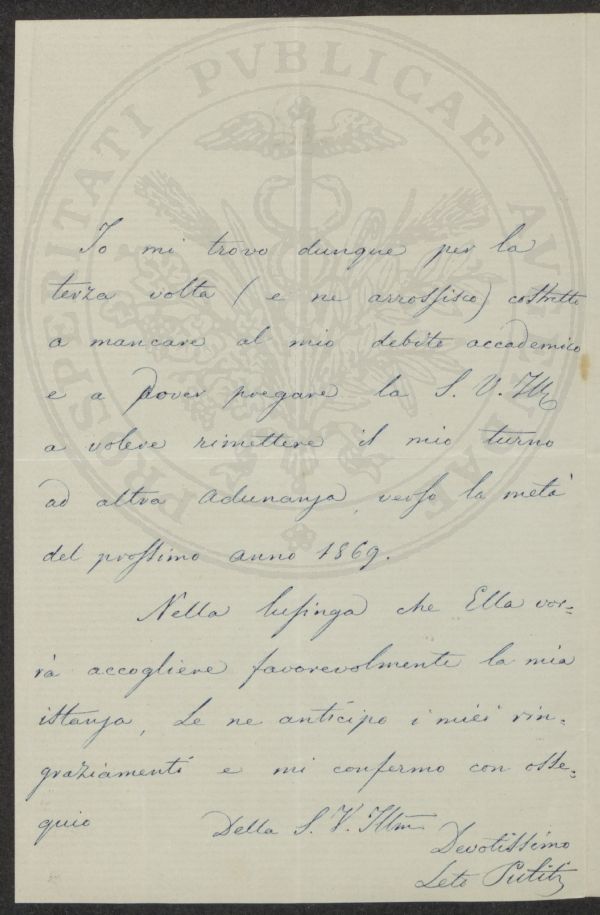 PROSPERITATI PVBLICAE AVGENDAE
Io mi trovo dunque per la
terza volta (e ne arrossisco) costretto
a mancare al mio debito accademico
e a dover pregare la S. V. Ill
a volere rimettere il mio turno
ad altra adunanza verso la metà
del prossimo anno 1869.
Nella lusinga che Ella vor=
rà accogliere favorevolmente la mia
istanza, Le ne anticipo i miei rin=
graziamenti e mi confermo con osse=
quio
Della S. V. Illm
Devotissimo
Leto Puliti